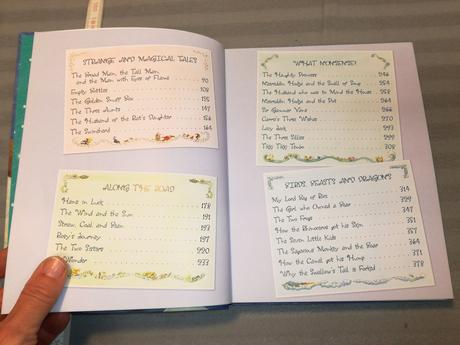 STRANGE AND MAGICAL TALES
The Broad Man, the Tall Man,
and the Man with Eyes of Flame 90
Empty Kettles 108
The Golden Snuff Box 125
The Three Aunts 147
The Husband of the Rat's Daughter 156
The Swineherd 164
ALONG THE ROAD
Hans in Luck 178
The Wind and the Sun 191
Straw, Coal, and Bean 197
Rosy's Journey 197
The Two Sisters 220
Wonder 233
WHAT NONSENSE!
The Haughty Princess 246
Nasreddin Hodja and the Smell of Soup 254
The Husband who was to Mind the House 258
Nasreddin Hodja and the Pot 264
Sir Gammer Vans 266
Clever's Three Wishes 270
Lazy Jack 293
The Three Sillies 299
Tiggy Tiggy Touch 308
BIRDS, BEASTS AND DRAGONS
My Lord Bag of Rice 314
The Girl who Owned a Bear 329
The Two Frogs 347
How the Rhinoceros got his Skin 351
The Seven Little Kids 357
The Sagacious Monkey and the Boar 364
How the Camel got his Hump 371
Why the Swallow's Tail is Forked 378